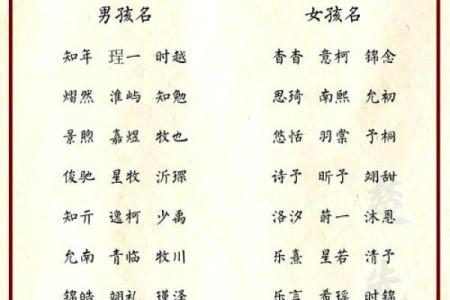 男孩名 女孩名
知年 珵一 时越 杳杳 意柯 锦念
熠然 淮屿 知勉 思琦 南熙 允初
景煦 嘉煜 牧也 悠恬 羽棠 予桐
俊驰 星牧 沂琛 诗予 昕予 翊甜
知亓 逸柯 少禹 洛汐 蔚一 沐恩
允南 青临 牧川 乐熹 星若 清予
锦皓 翊礼 瑾泽 乐言 希瑶 时锦